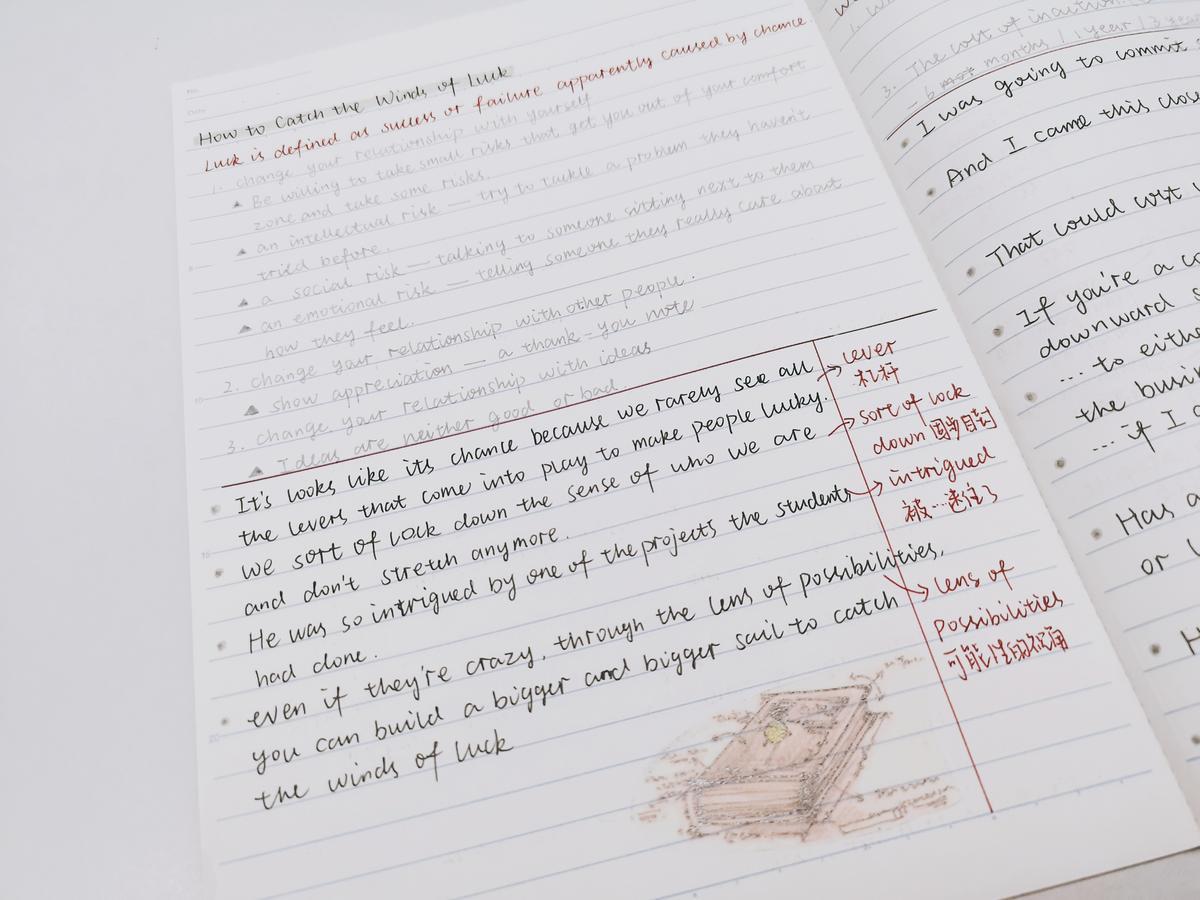 How to Catch the Winds of Luck
Luck is defined as success or failure apparently caused by chance.
1. change your relationship with yourself
▲ Be willing to take small risks that get you out of your comfort
zone and take some risks.
▲ an intellectual risk — try to tackle a problem they haven't
tried before.
▲ a social risk — talking to someone sitting next to them
▲ an emotional risk — telling someone they really care about
how they feel.
2. change your relationship with other people.
▲ show appreciation — a thank-you note
3. change your relationship with ideas
▲ Ideas are neither good or bad.
It's looks like its chance because we rarely see all
the levers that come into play to make people lucky.
we sort of lock down the sense of who we are
and don't stretch anymore.
He was so intrigued by one of the projects the students
had done.
even if they're crazy, through the lens of possibilities,
you can build a bigger and bigger sail to catch
the winds of luck
→ lever
杠杆
→ sort of lock
down 固步自封
→ intrigued
被…迷住了
→ lens of
Possibilities
可能性的视角
3. The cost of inaction
- 6 months / 1 year / 3 year
I was going to commit
And I came this close
That could cost
If you're a
downward
... to eith
the busin
... if I
Has a
or
H